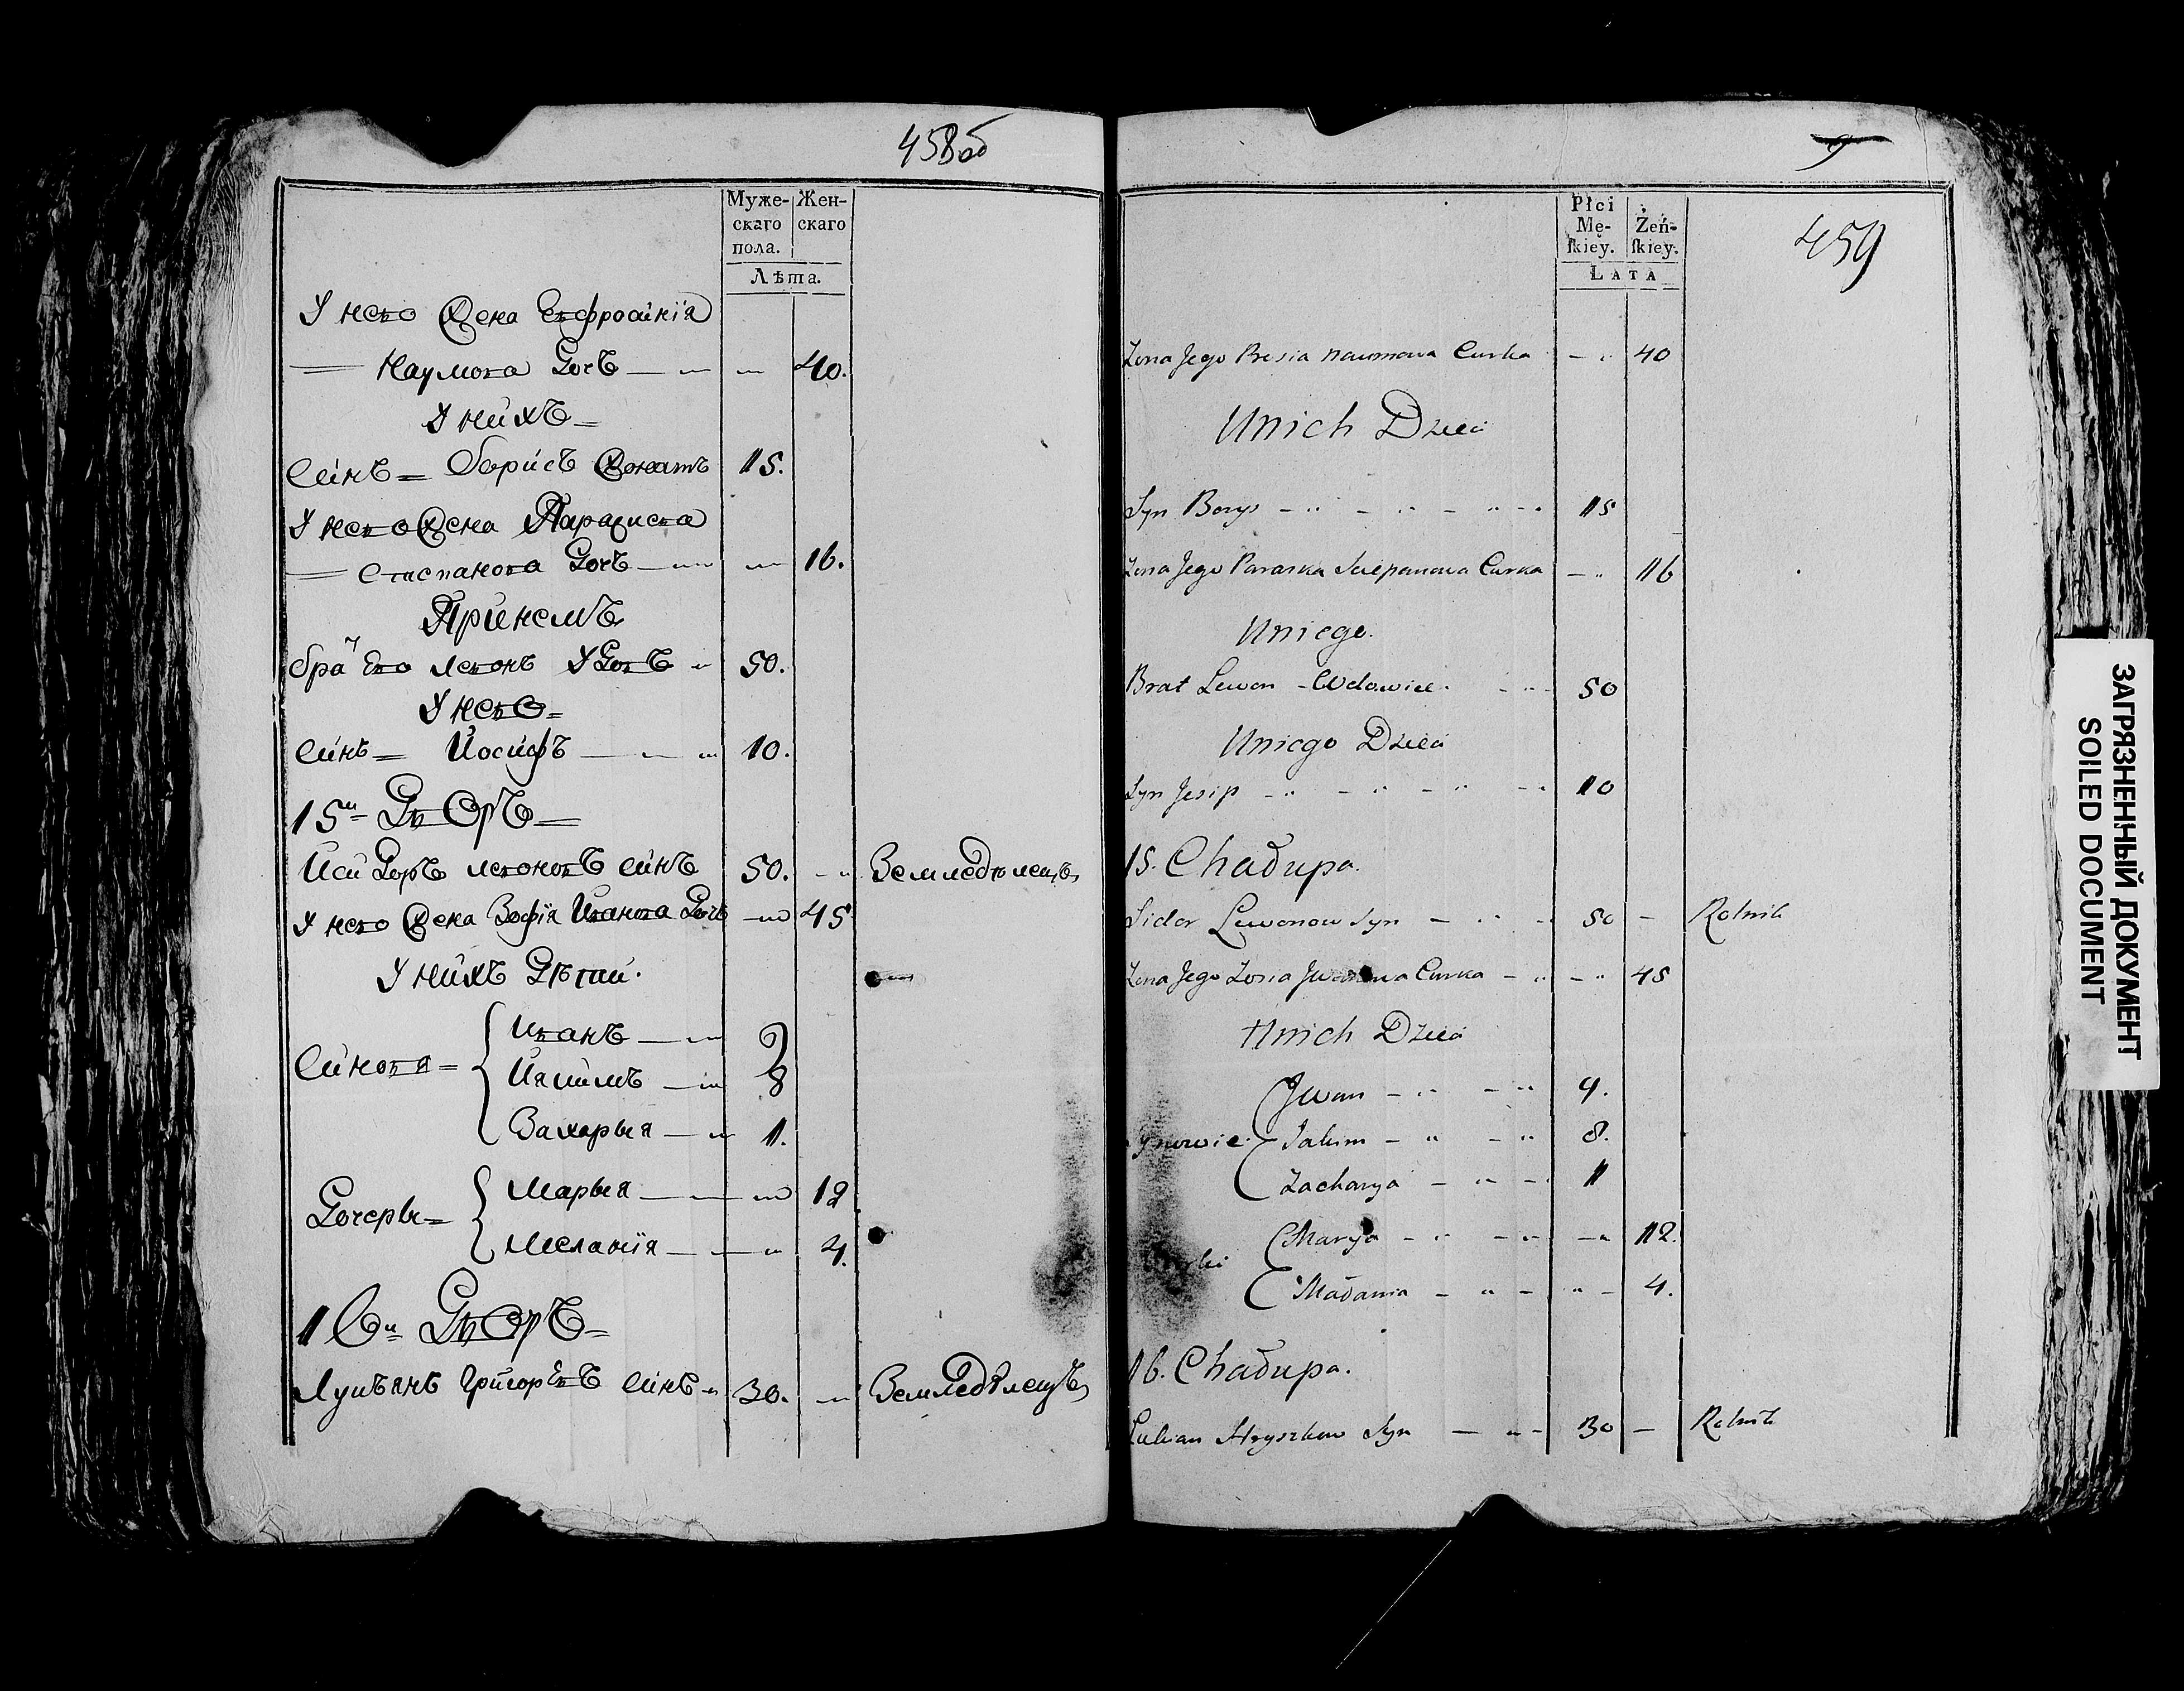 458об
Муже-
скаго
пола.
Жен-
скаго
Лѣта.
У него Жена Евфросинія
Наумова Дочь 40.
У нихъ
Синъ Борисъ Женатъ 15.
У него Жена Параиска
Степанова Дочь 16.
При немъ
Братъ Его Левонъ Удовъ 50.
У него
Синъ Йосифъ 10.
15й Дворъ
Исидоръ Левоновъ Синъ 50. Земледѣлецъ
У него Жена Зофія Иванова Дочь 45
У нихъ Дѣти.
Синовя
Иванъ 9
Иакимъ 8
Захарыя 1.
Дочеры
Марыя 12
Меланія 4.
16й Дворъ
Лукъянъ Григорьевъ Синъ 30. Земледѣлецъ
9
459
Płci
Mę-
ſkiey.
Żeń-
ſkiey.
LATA
Zona Jego Presia Naumowa Curka 40
Unich Dzieci
Syn Borys 15
Zona Jego Paraska Sciepanowa Curka 16
Uniego.
Brat Lewon Wdowiec 50
Uniego Dzieci
Syn Jesip 10
15. Chałupa.
Sidor Lewonow Syn 50 — Rolnik
Zona Jego Zosia Jwanowa Curka 45
Unich Dzieci
Jwan 9.
Synowie Jakim 8.
Zacharya 1
Marya 12.
Małania 4.
16. Chałupa.
Lukian Hryszkow Syn 30 — Rolnik
ЗАГРЯЗНЕННЫЙ ДОКУМЕНТ
SOILED DOCUMENT